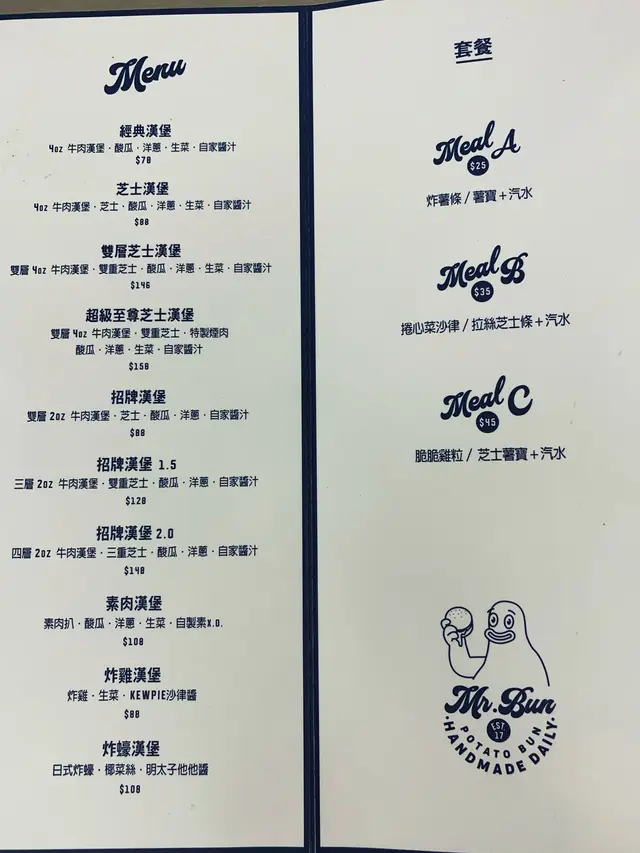 Menu
經典漢堡
4oz 牛肉漢堡·酸瓜·洋蔥·生菜·自家醬汁
$78
芝士漢堡
4oz 牛肉漢堡·芝士·酸瓜·洋蔥·生菜·自家醬汁
$88
雙層芝士漢堡
雙層 4oz 牛肉漢堡·雙重芝士·酸瓜·洋蔥·生菜·自家醬汁
$146
超級至尊芝士漢堡
雙層 4oz 牛肉漢堡·雙重芝士·特製煙肉
酸瓜·洋蔥·生菜·自家醬汁
$158
招牌漢堡
雙層 2oz 牛肉漢堡·芝士·酸瓜·洋蔥·自家醬汁
$88
招牌漢堡 1.5
三層 2oz 牛肉漢堡·雙重芝士·酸瓜·洋蔥·自家醬汁
$128
招牌漢堡 2.0
四層 2oz 牛肉漢堡·三重芝士·酸瓜·洋蔥·自家醬汁
$148
素肉漢堡
素肉扒·酸瓜·洋蔥·生菜·自製素X.O.
$108
炸雞漢堡
炸雞·生菜·KEWPIE沙律醬
$88
炸蠔漢堡
日式炸蠔·椰菜絲·明太子他他醬
$108
套餐
Meal A
$25
炸薯條 / 薯寶+汽水
Meal B
$35
捲心菜沙律 / 拉絲芝士條+汽水
Meal C
$45
脆脆雞粒 / 芝士薯寶+汽水
Mr. Bun
EST 17
POTATO BUN
·HANDMADE DAILY·